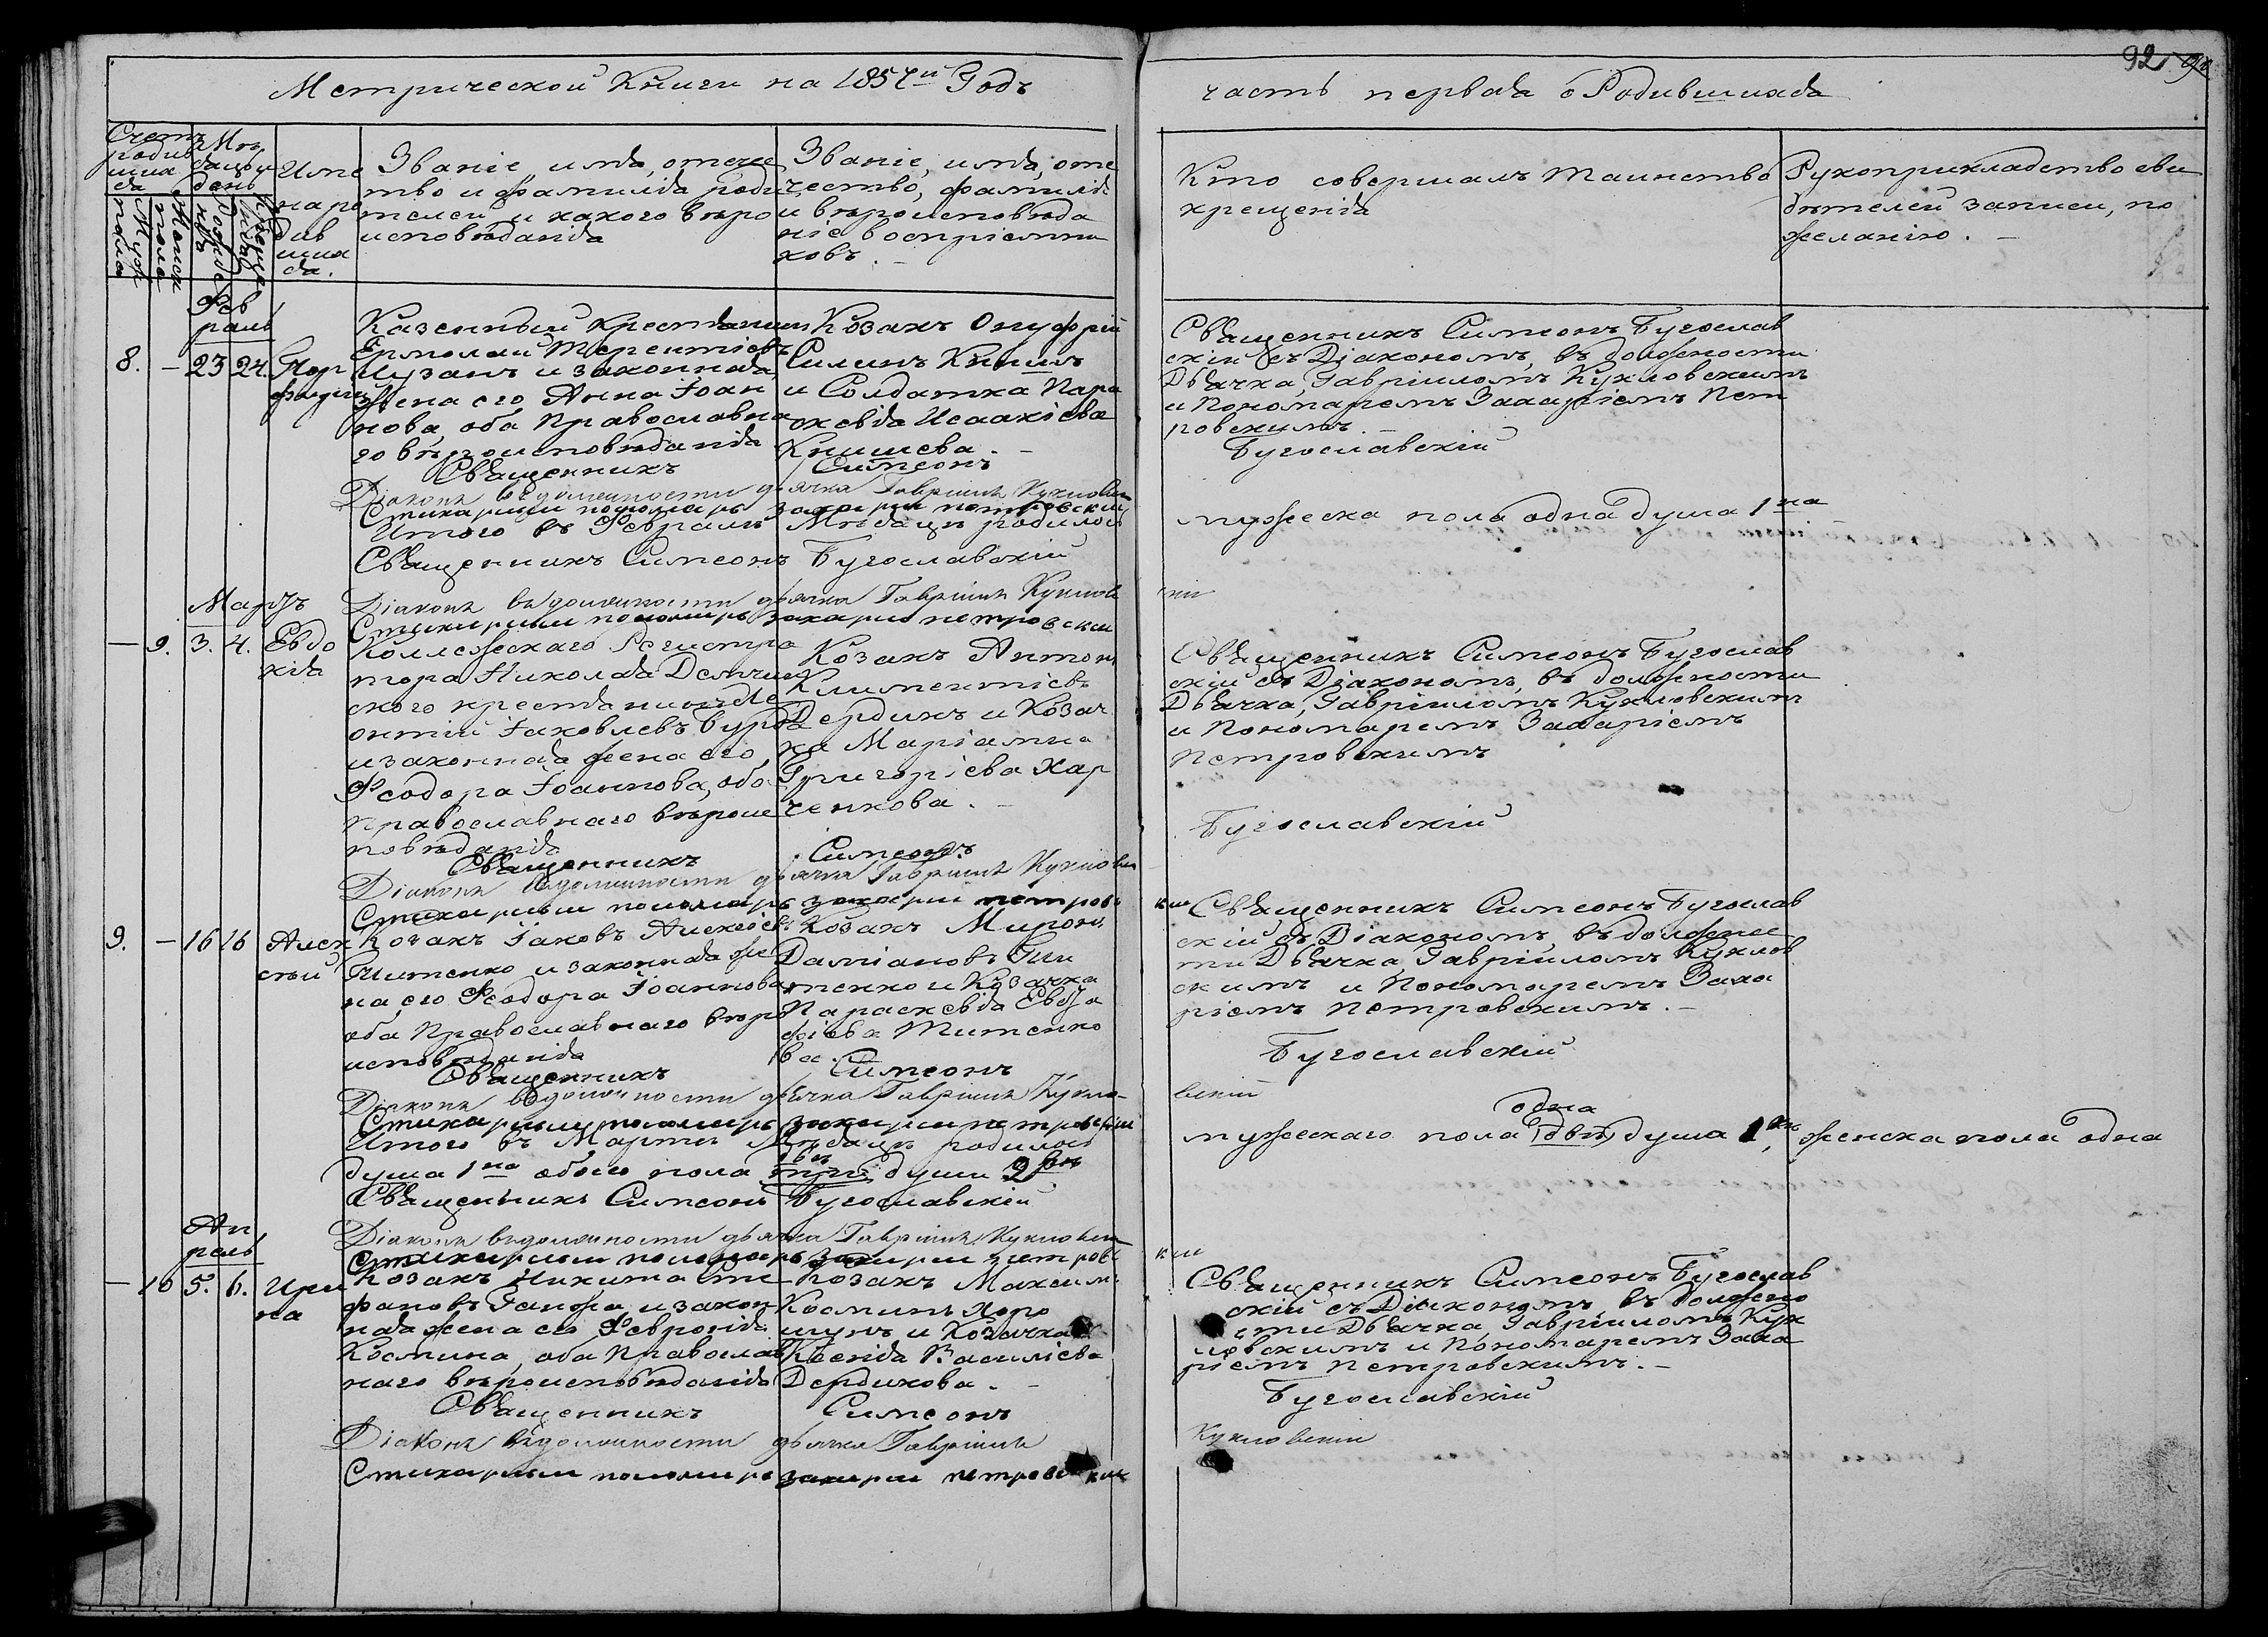 Метрической Книги на 1857й Годъ
часть первая о Родившихся
92
Счетъ родившихся
Мужеска пола
Женска пола
Мѣсяцъ и день
Рожденія
Крещенія
Имена родившихся.
Званіе, имя, отече
ство и фамилія роди
телей и какого вѣро
исповѣданія
Званіе, имя, оте
чество, фамилія
и вѣроисповѣда
ніе воспріемни
ковъ. –
Кто совершалъ таинство
крещенія
Рукоприкладство сви
дѣтелей записи, по
желанію. –
Фев
раль
8. – 23 24. Пор
фирій
Казенный крестьянинъ
Ермолай Терентіевъ
и законная
жена его Анна Іоан
нова, оба Православна
го вѣроисповѣданія
Козакъ Онуфрій
Силинъ Книшъ
и Солдатка Пара
скевія Исаакіева
Книшева. –
Священникъ Симеонъ Бугослав
скій съ Діакономъ, въ должности
Дьячка, Гавріиломъ Кукловскимъ
и Пономаремъ Захаріемъ Пет
ровскимъ. –
Священникъ Симеонъ Бугославскій
Діаконъ въ должности дьячка Гавріилъ Кукловскій
Стихарный пономарь Захарій Петровскій
Итого въ Февралѣ Мѣсяцѣ родилось мужеска пола одна душа 1на
Священникъ Симеонъ Бугославскій
Мартъ
Діаконъ въ должности дьячка Гавріилъ Кукловскій
Стихарный пономарь Захарій Петровскій
– 9. 3. 4. Евдо
кія
Коллежскаго Регистра
тора Николая Демчин
ского крестьянинъ Ле
онтій Іаковлевъ
и законная жена его,
Феодора Іоаннова, оба
Православнаго вѣроис
повѣданія
Козакъ Антонъ
Климентіевъ
Дердикъ и Козач
ка Маріамна
Григоріева Хар
ченкова. –
Священникъ Симеонъ Бугослав
скій съ Діакономъ, въ должности
Дьячка, Гавріиломъ Кукловскимъ
и Пономаремъ Захаріемъ
Петровскимъ
Священникъ Симеонъ Бугославскій
Діаконъ въ должности дьячка Гавріилъ Кукловскій
Стихарный пономарь Захарій Петровскій
9. – 16 16 Алек
сѣй
Козакъ Іаковъ Алексіевъ
Титенко и законная же
на его Феодора Іоаннова
оба Православнаго вѣро
исповѣданія
Козакъ Миронъ
Даміановъ Ти
тенко и Козачка
Параскевія Евдо
Титенко
ва. –
Священникъ Симеонъ Бугослав
скій съ Діакономъ, въ должнос
ти Дьячка, Гавріиломъ Куклов
скимъ и Пономаремъ Заха
ріемъ Петровскимъ. –
Священникъ Симеонъ Бугославскій
Діаконъ въ должности дьячка Гавріилъ Кукловскій
Стихарный пономарь Захарій Петровскій
одна
Итого въ Мартѣ Мѣсяцѣ родилось мужескаго пола (двѣ) душа 1на, женска пола одна
двѣ
душа 1на обоего пола три души 2вѣ
Священникъ Симеонъ Бугославскій
Ап
рель
Діаконъ въ должности дьячка Гавріилъ Кукловскій
Стихарный пономарь Захарій Петровскій
– 10 5. 6. Ири
на
Козакъ Никита Сте
фановъ Ганжа и закон
ная жена его Февронія
Космина, оба Православ
наго вѣроисповѣданія
Козакъ Максимъ
Косминъ Хоро
шунъ и Козачка
Ксенія Василіева
Дердикова. –
Священникъ Симеонъ Бугослав
скій съ Діакономъ, въ должно
сти Дьячка, Гавріиломъ Кук
ловскимъ и Пономаремъ Заха
ріемъ Петровскимъ. –
Священникъ Симеонъ Бугославскій
Діаконъ въ должности дьячка Гавріилъ Кукловскій
Стихарный пономарь Захарій Петровскій